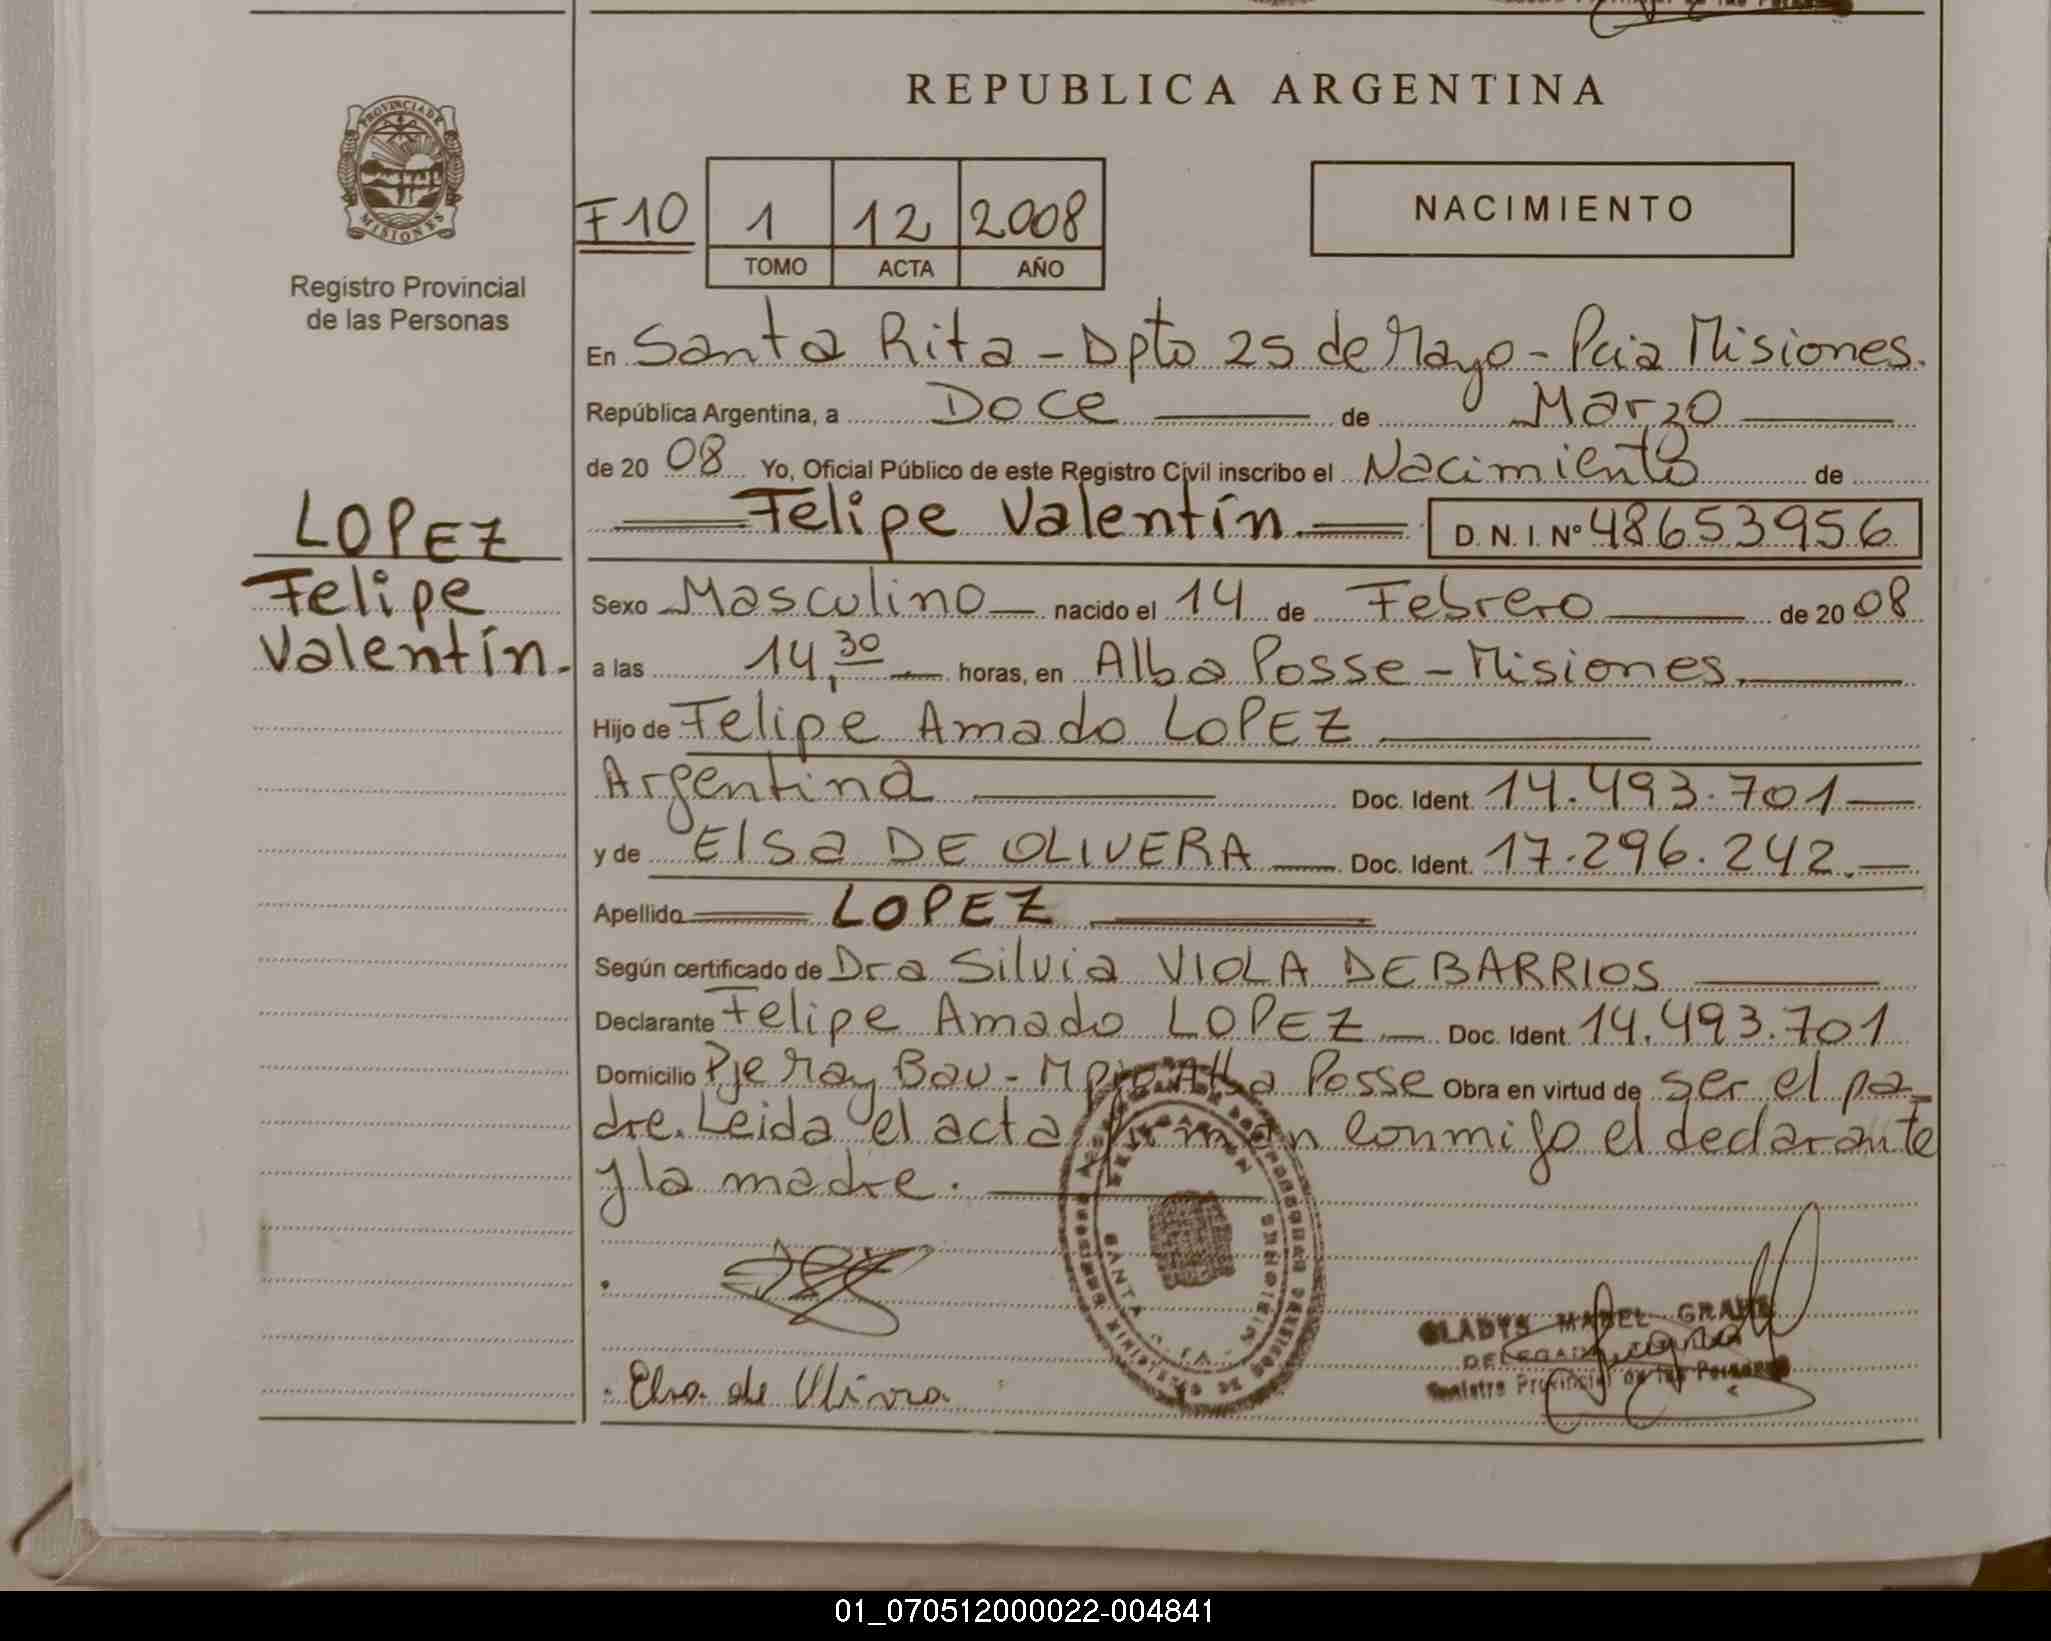 REPUBLICA ARGENTINA
PROVINCIA DE MISIONES
Registro Provincial
de las Personas
F10 1 12 2008
TOMO ACTA AÑO
NACIMIENTO
En Santa Rita - Dpto 25 de Mayo - Pcia Misiones.
República Argentina, a Doce de Marzo
de 20 08 Yo, Oficial Público de este Registro Civil inscribo el Nacimiento de
Felipe Valentín. D. N. I. Nº 48653956
LOPEZ
Felipe
Valentín.
Sexo Masculino nacido el 14 de Febrero de 20 08
a las 14,30 horas, en Alba Posse - Misiones.
Hijo de Felipe Amado LOPEZ
Argentina Doc. Ident. 14.493.701
y de Elsa DE OLIVERA Doc. Ident. 17.296.242.
Apellido LOPEZ
Según certificado de Dra Silvia VIOLA DE BARRIOS
Declarante Felipe Amado LOPEZ Doc. Ident. 14.493.701
Domicilio Pje Ray Bau - Mpio Alba Posse Obra en virtud de ser el pa-
dre. Leida el acta firman conmigo el declarante
y la madre.
DELEGACION
SANTA RITA
MISIONES
GLADYS MABEL
DELEGADA
Registro Provincial de las Personas
Elsa de Olivera
01_070512000022-004841